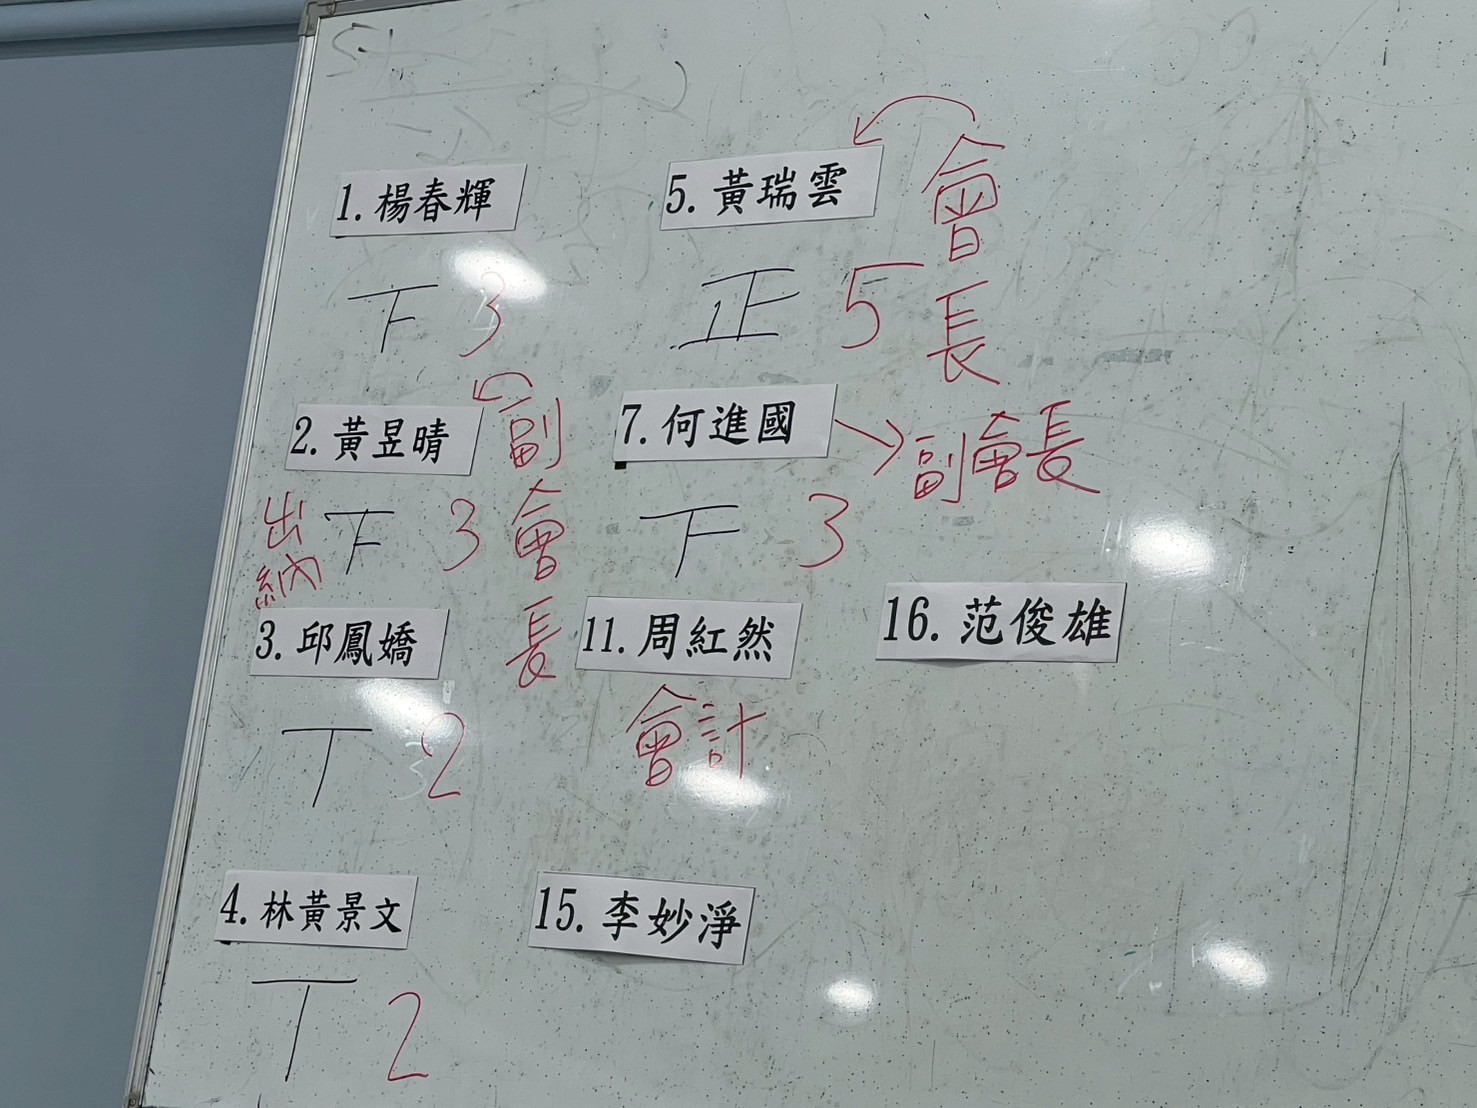 1. 楊春輝
3
5. 黃瑞雲
正 5
會長
2. 黃昱晴
3
副會長
出納
7. 何進國
副會長
3
3. 邱鳳嬌
2
11. 周紅然
會計
16. 范俊雄
4. 林黃景文
2
15. 李妙淨